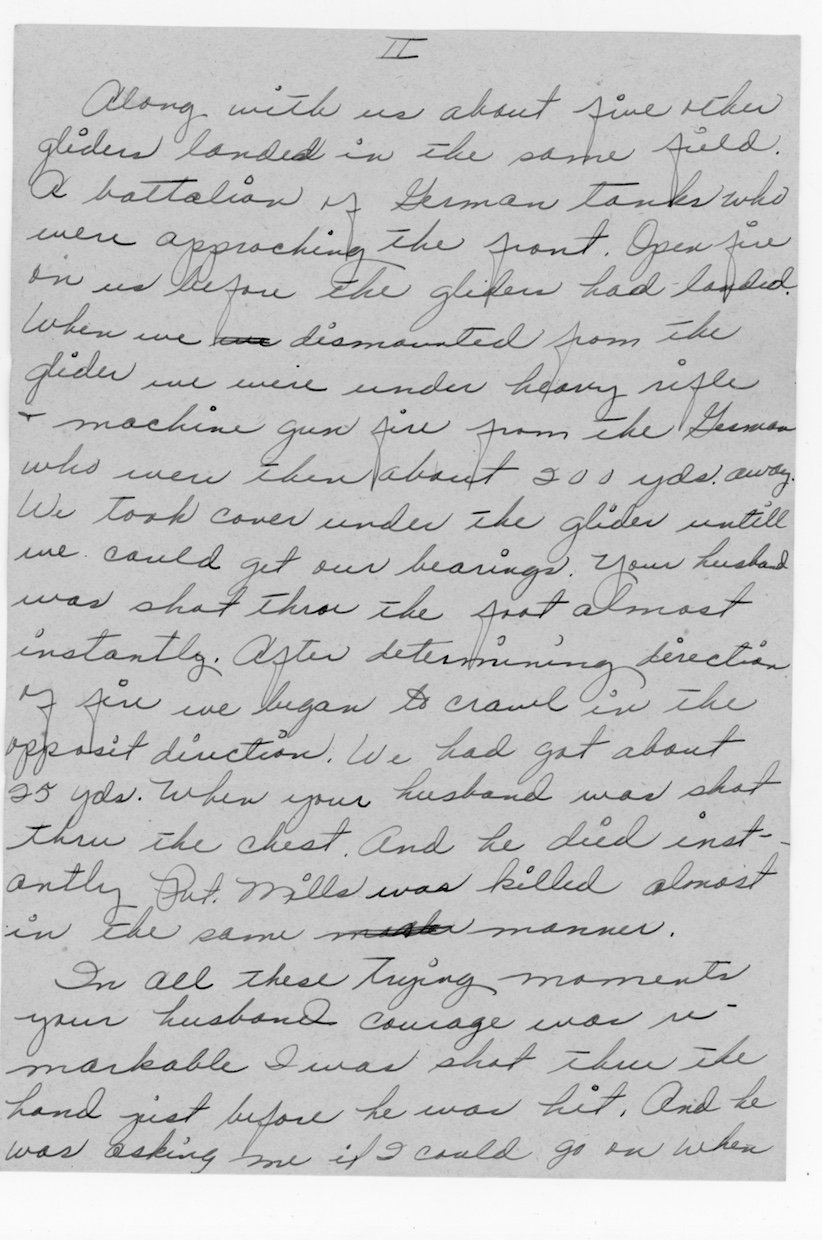 II
Along with us about five other
gliders landed in the same field.
A battalion of German tanks who
were approching the front. Open fire
on us before the gliders had landed.
When we dismounted from the
glider we were under heavy rifle
+ machine gun fire from the German
who were then about 200 yds. away.
We took cover under the glider untill
we could get our bearings. Your husband
was shot throu the foot almost
instantly. After determining direction
of fire we began to crawl in the
opposit direction. We had got about
25 yds. When your husband was shot
thru the chest. And he died inst-
antly Pvt. Mills was killed almost
in the same manner.
In all these trying moments
your husband courage was re-
markable I was shot thru the
hand just before he was hit. And he
was asking me if I could go on when